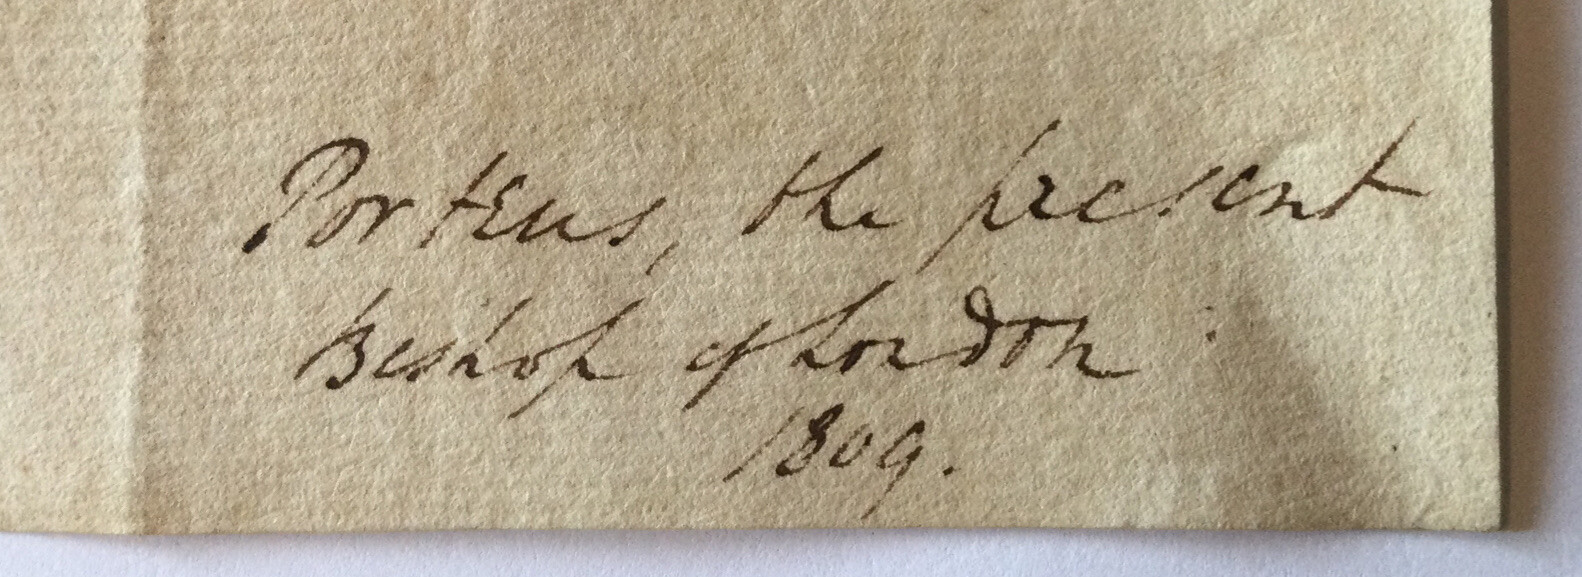 Porteus, the present
Bishop of London
1809.